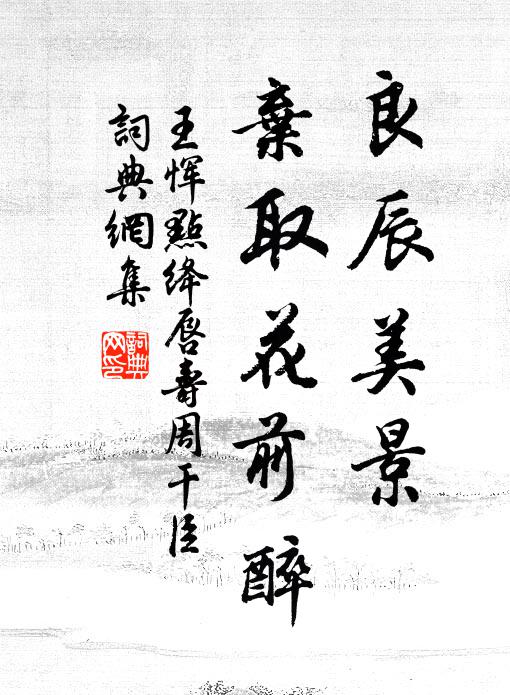 良辰美景
棄取花前醉
王惲點絳唇壽周干臣
詞典網集
詞典網印